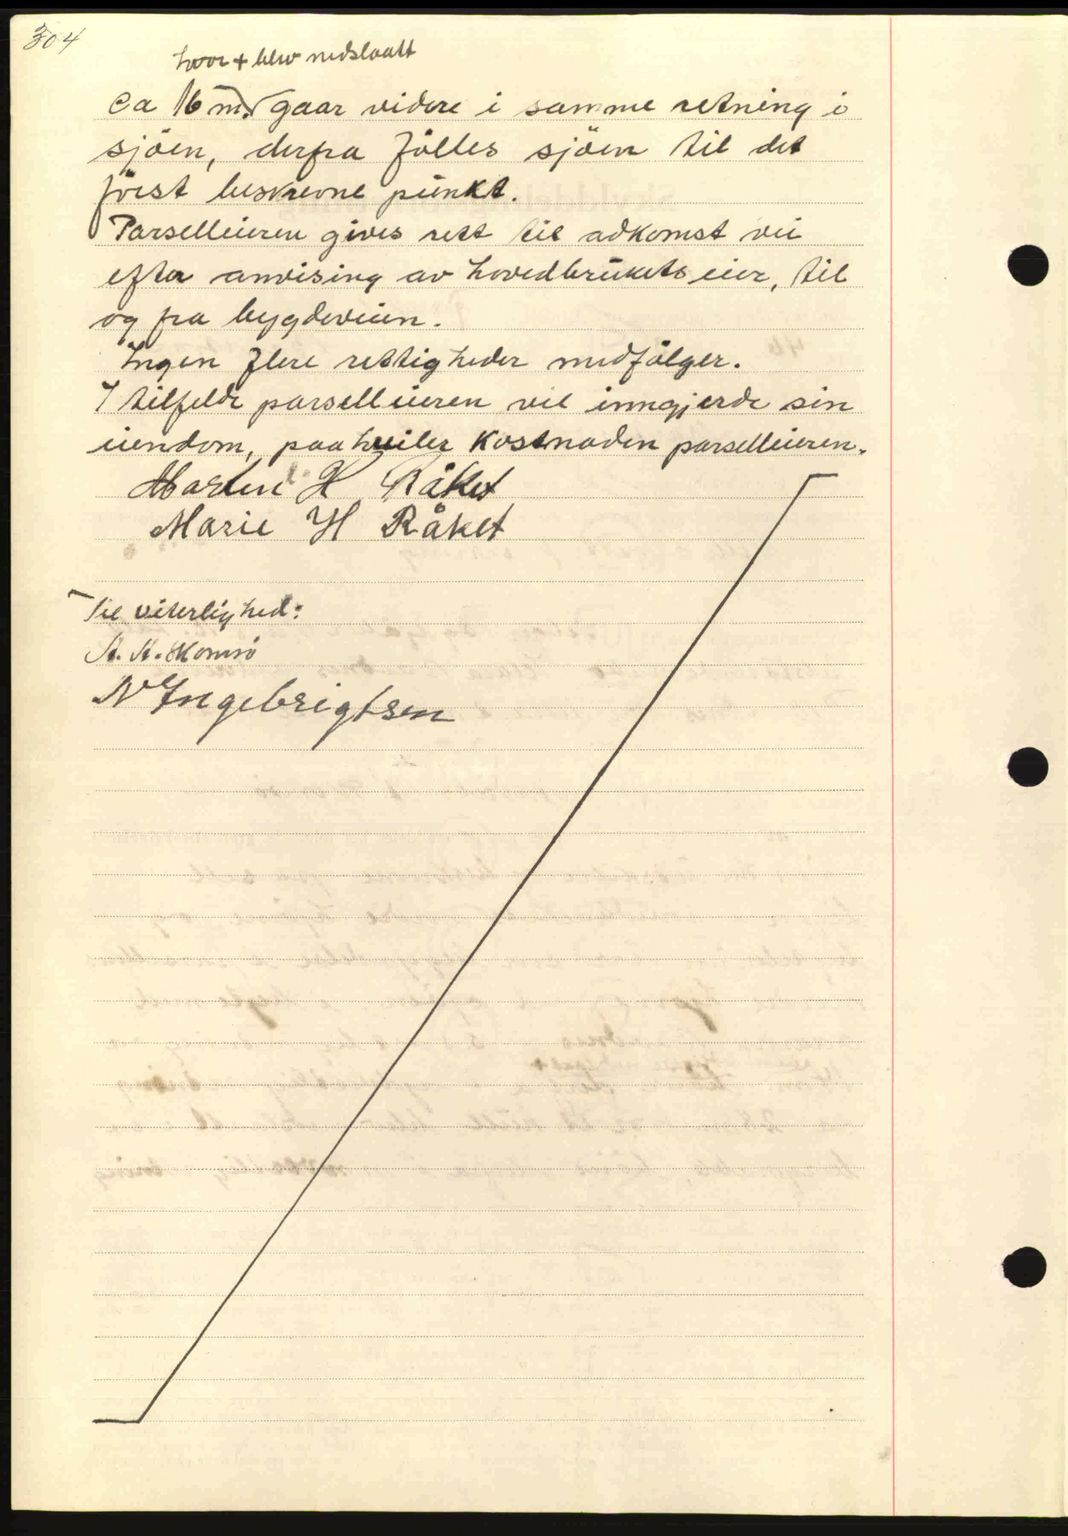 304
hvor + blev nedslaatt
Ca 16 m. gaar videre i samme retning i
sjöen, derfra fölles sjöen til det
först beskrevne punkt.
Parselleieren gives rett til adkomst vei
efter anvising av hovedbrukets eier, til
og fra bygdeveien.
Ingen flere rettigheder medfölger.
I tilfelde parselleieren vil inngjerde sin
eiendom, paahviler kostnaden parselleieren.
Martin H Råket
Marie H Råket
Til viterlighed:
N Ingebrigtsen